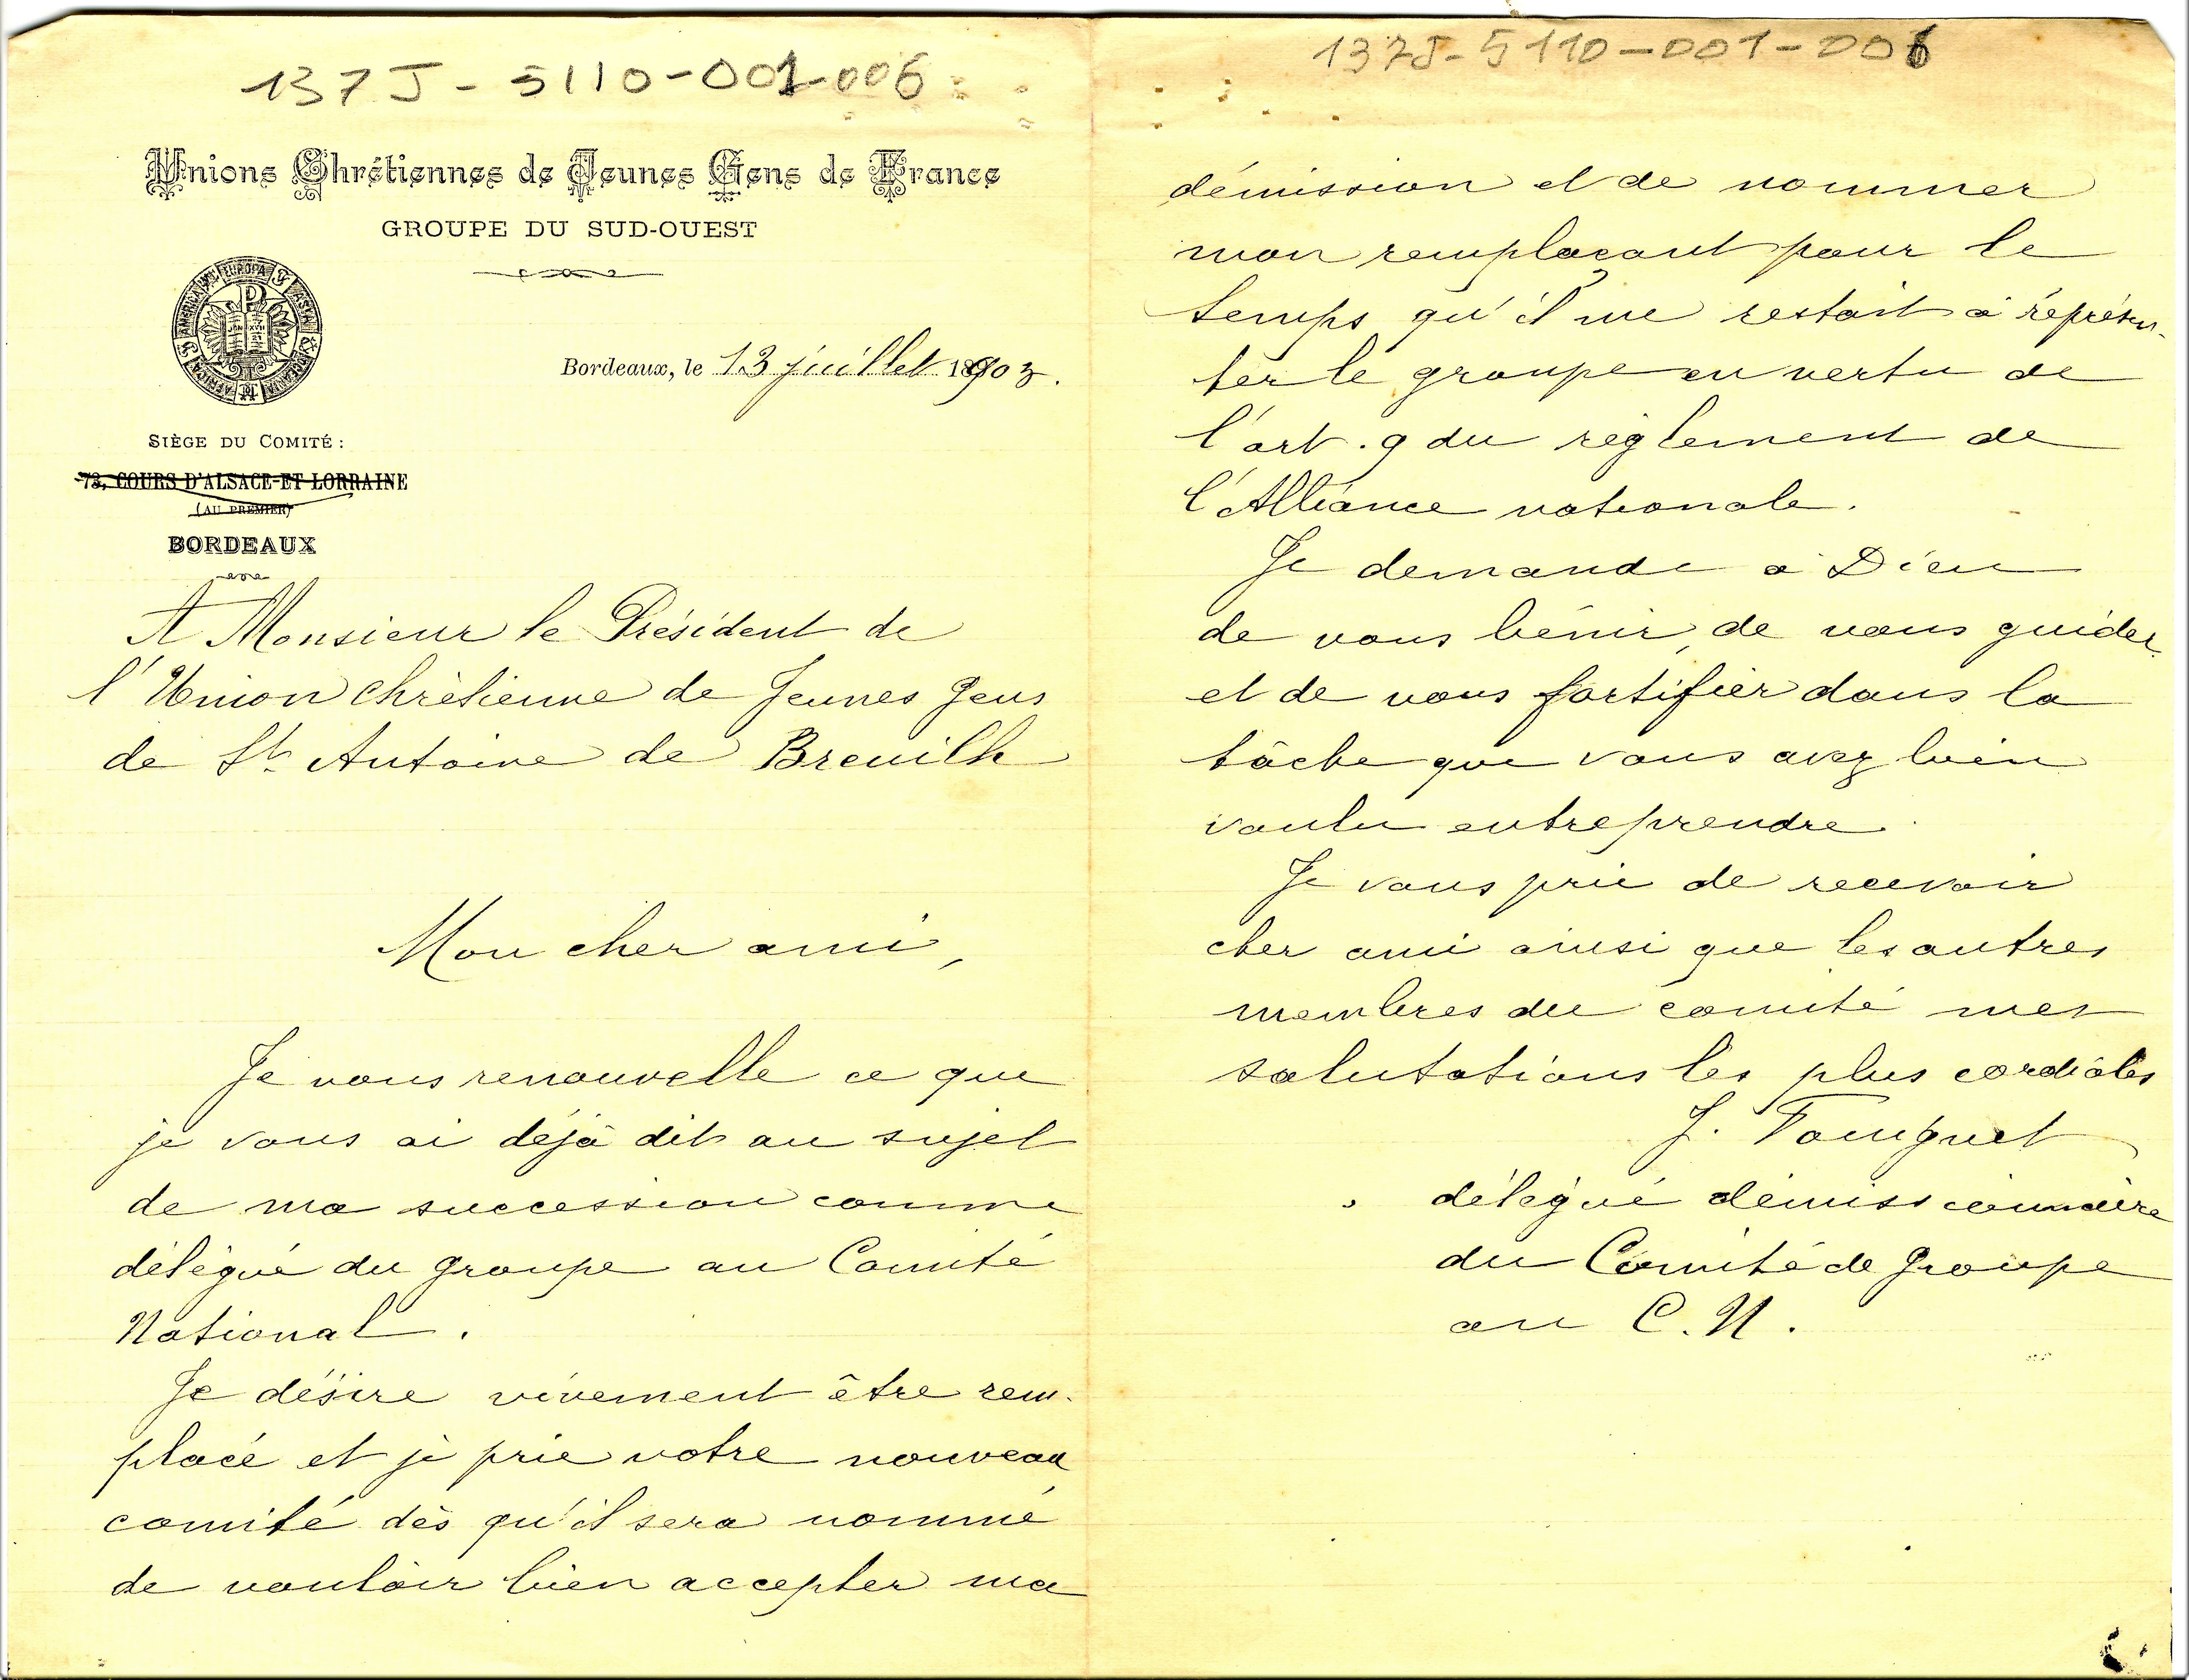 137 J - 5110-001-006
Unions Chrétiennes de Jeunes Gens de France
GROUPE DU SUD-OUEST
EUROPA
ASIA
OCEANIA
AFRICA
AMERICA
JEAN XVII
Bordeaux, le 13 juillet 1903.
SIÈGE DU COMITÉ :
73, COURS D'ALSACE-ET-LORRAINE
(AU PREMIER)
BORDEAUX
A Monsieur le Président de
l'Union chrétienne de Jeunes Gens
de St Antoine de Breuilh
Mon cher ami,
Je vous renouvelle ce que
je vous ai déjà dit au sujet
de ma succession comme
délégué du groupe au Comité
National.
Je désire vivement être rem-
placé et je prie votre nouveau
comité dès qu'il sera nommé
de vouloir bien accepter ma
137J-5110-001-006
démission et de nommer
mon remplaçant pour le
temps qu'il me restait à représen-
ter le groupe en vertu de
l'art. 9 du règlement de
l'Alliance nationale.
Je demande à Dieu
de vous bénir, de vous guider
et de vous fortifier dans la
tâche que vous avez bien
voulu entreprendre.
Je vous prie de recevoir
cher ami ainsi que les autres
membres du comité mes
salutations les plus cordiales
J.
délégué démissionnaire
du Comité de Groupe
au C. N.